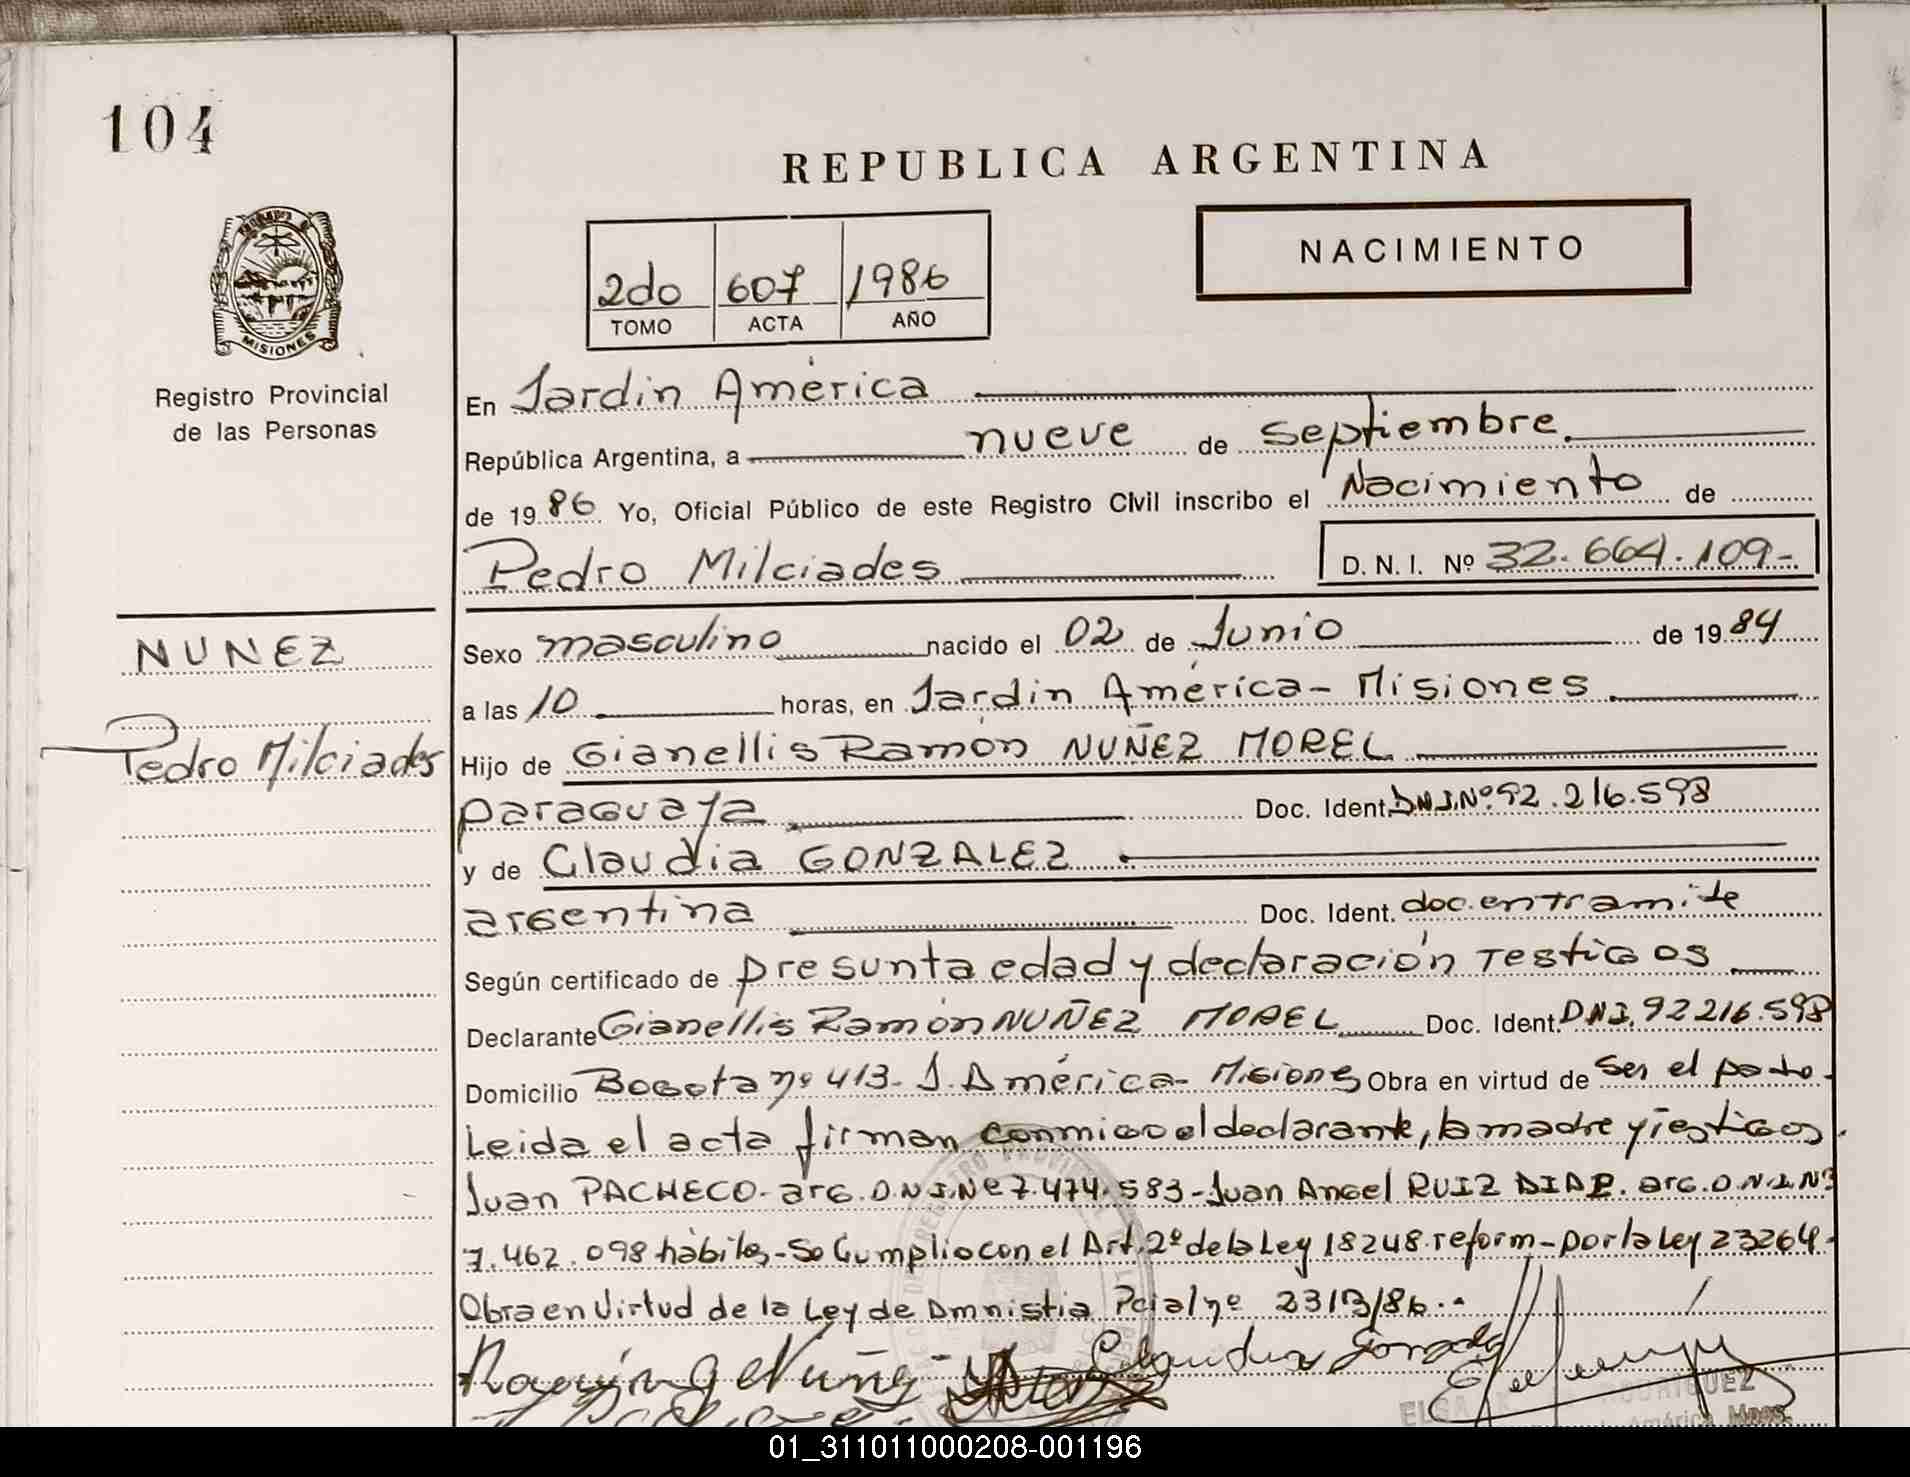 104
REPUBLICA ARGENTINA
NACIMIENTO
2do 607 1986
TOMO ACTA AÑO
MISIONES
Registro Provincial
de las Personas
En Jardin América
República Argentina, a nueve de septiembre.
de 1986 Yo, Oficial Público de este Registro Civil inscribo el Nacimiento de
Pedro Milciades D. N. I. Nº 32.664.109-
NUNEZ
Pedro Milciades
Sexo masculino nacido el 02 de Junio de 1984
a las 10 horas, en Jardin América - Misiones
Hijo de Gianellis Ramón NUÑEZ MOREL
paraguaya Doc. Ident. DNI.Nº.92.216.598
y de Claudia GONZALEZ
argentina Doc. Ident. doc. en tramite
Según certificado de presunta edad y declaración Testigos
Declarante Gianellis Ramón NUÑEZ MOREL Doc. Ident. DNI.92216.598
Domicilio Bogota nº 413- J. América- Misiones Obra en virtud de ser el padre.
Leida el acta firman conmigo el declarante, la madre y testigos.
Juan PACHECO- arg. D.N.I.Nº 7.474.583-Juan Angel RUIZ DIAZ. arg. D.N.I.Nº
7.462.098 hábiles-Se Cumplio con el Art. 2º de la Ley 18248 reform- por la Ley 23264-
Obra en Virtud de la Ley de Amnistia Pcial nº 2313/86.-
Ramón G Nuñez Claudia Gonzalez
RODRIGUEZ
América Mnes.
01_311011000208-001196